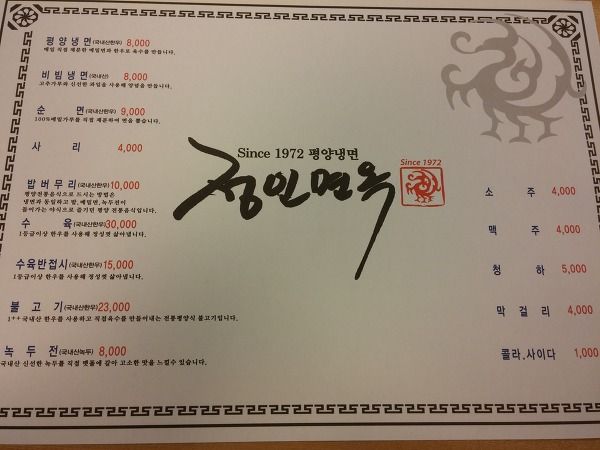 평양냉면(국내산한우) 8,000
매일 직접 제분한 메밀면과 한우로 육수를 만듭니다.
비빔냉면(국내산) 8,000
고추가루와 신선한 과일을 사용해 양념을 만듭니다.
순면(국내산한우) 9,000
100%메밀가루를 직접 제분하여 면을 뽑습니다.
사리 4,000
밥버무리(국내산한우)10,000
평양전통음식으로 드시는 방법은
냉면과 동일하고 밥,메밀면,녹두전이
들어가는 야식으로 즐기던 평양 전통음식입니다.
수육(국내산한우)30,000
1등급이상 한우를 사용해 정성껏 삶아냅니다.
수육반접시(국내산한우)15,000
1등급이상 한우를 사용해 정성껏 삶아냅니다.
불고기(국내산한우)23,000
1++국내산 한우를 사용하고 직접육수를 만들어내는 전통평양식 불고기입니다.
녹두전(국내산녹두) 8,000
국내산 신선한 녹두를 직접 맷돌에 갈아 고소한 맛을 느낄수 있습니다.
Since 1972 평양냉면
정인면옥
Since 1972
소주 4,000
맥주 4,000
청하 5,000
막걸리 4,000
콜라.사이다 1,000